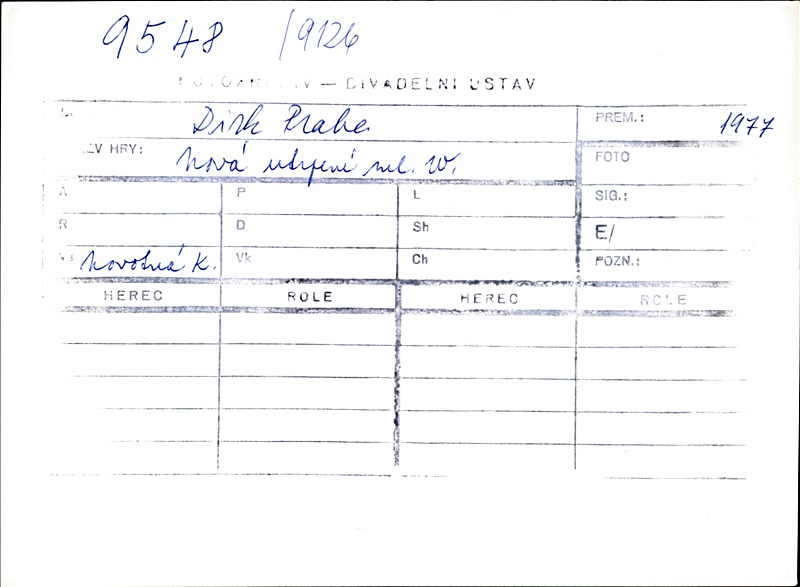 9548 /9126
— DIVADELNÍ ÚSTAV
Disk Praha
PREM.: 1977
EV HRY: Nová utrpení ml. W.
FOTO
A P L SIG.:
R D Sh E/
Novotná K. Vk Ch POZN.:
HEREC ROLE HEREC ROLE